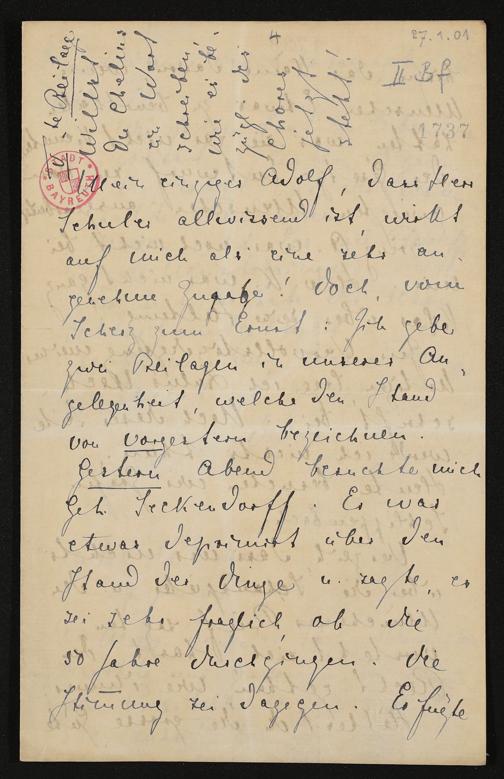 27.1.01
II Bf
1737
STADT BAYREUTH
Beilage
Willst
Du Chelius
ein Wort
schreiben
wie es be-
zügl. des
Chores
jetzt
steht!
Mein einziger Adolf, dass Herr
Schuler allwissend ist, wirkt
auf mich als eine sehr an-
genehme Zugabe! Doch, vom
Scherz zum Ernst: Ich gebe
zwei Beilagen in unserer An-
gelegenheit, welche den Stand
von vorgestern bezeichnen.
Gestern Abend besuchte mich
Geh. Seckendorff. Er war
etwas deprimirt über den
Stand der Dinge u. sagte, es
sei sehr fraglich, ob die
50 Jahre durchgingen. Die
Stimmung sei dagegen. Er fügte